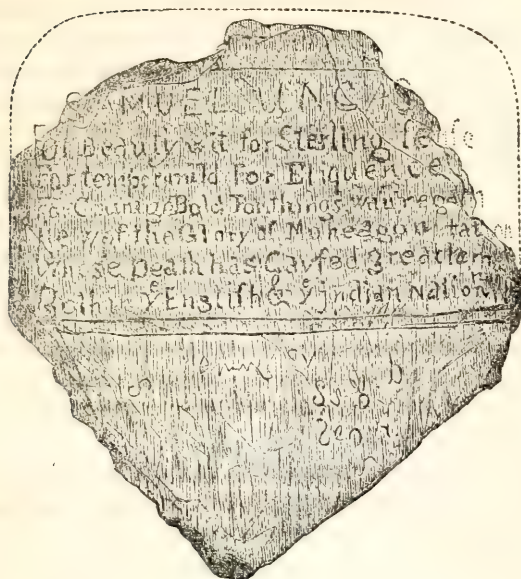 SAMUEL UNCAS
For Beauty wit for Sterling sense
For temper mild For Eliquence
For Courage Bold For things wau'regan
He was the Glory of Moheagon
Whose Death has Caused great
Both in yͤ English & yͤ Indian Nation